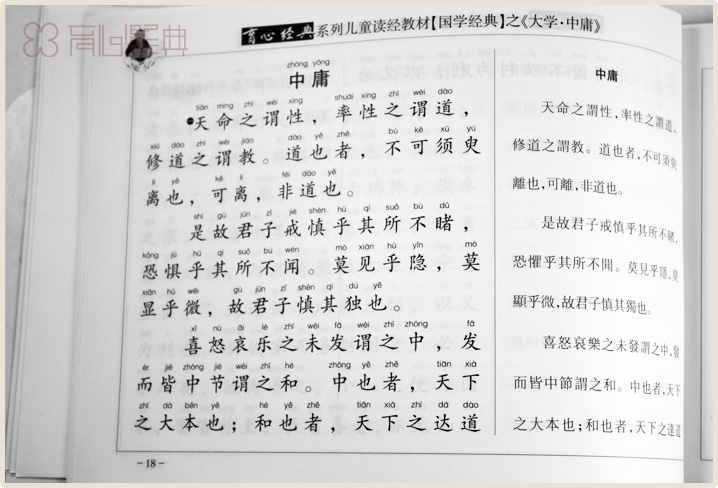 育心经典
育心经典系列儿童读经教材【国学经典】之《大学·中庸》
zhōng yōng
中庸
tiān mìng zhī wèi xìng shuài xìng zhī wèi dào
天命之谓性，率性之谓道，
xiū dào zhī wèi jiào dào yě zhě bù kě xū yú
修道之谓教。道也者，不可须臾
lí yě kě lí fēi dào yě
离也，可离，非道也。
shì gù jūn zǐ jiè shèn hū qí suǒ bù dǔ
是故君子戒慎乎其所不睹，
kǒng jù hū qí suǒ bù wén mò xiàn hū yǐn mò
恐惧乎其所不闻。莫见乎隐，莫
xiǎn hū wēi gù jūn zǐ shèn qí dú yě
显乎微，故君子慎其独也。
xǐ nù āi lè zhī wèi fā wèi zhī zhōng fā
喜怒哀乐之未发谓之中，发
ér jiē zhòng jié wèi zhī hé zhōng yě zhě tiān xià
而皆中节谓之和。中也者，天下
zhī dà běn yě hé yě zhě tiān xià zhī dá dào
之大本也；和也者，天下之达道
-18-
中庸
天命之謂性，率性之謂道，
修道之謂教。道也者，不可須臾
離也，可離，非道也。
是故君子戒慎乎其所不睹，
恐懼乎其所不聞。莫見乎隱，莫
顯乎微，故君子慎其獨也。
喜怒哀樂之未發謂之中，發
而皆中節謂之和。中也者，天下
之大本也；和也者，天下之達道